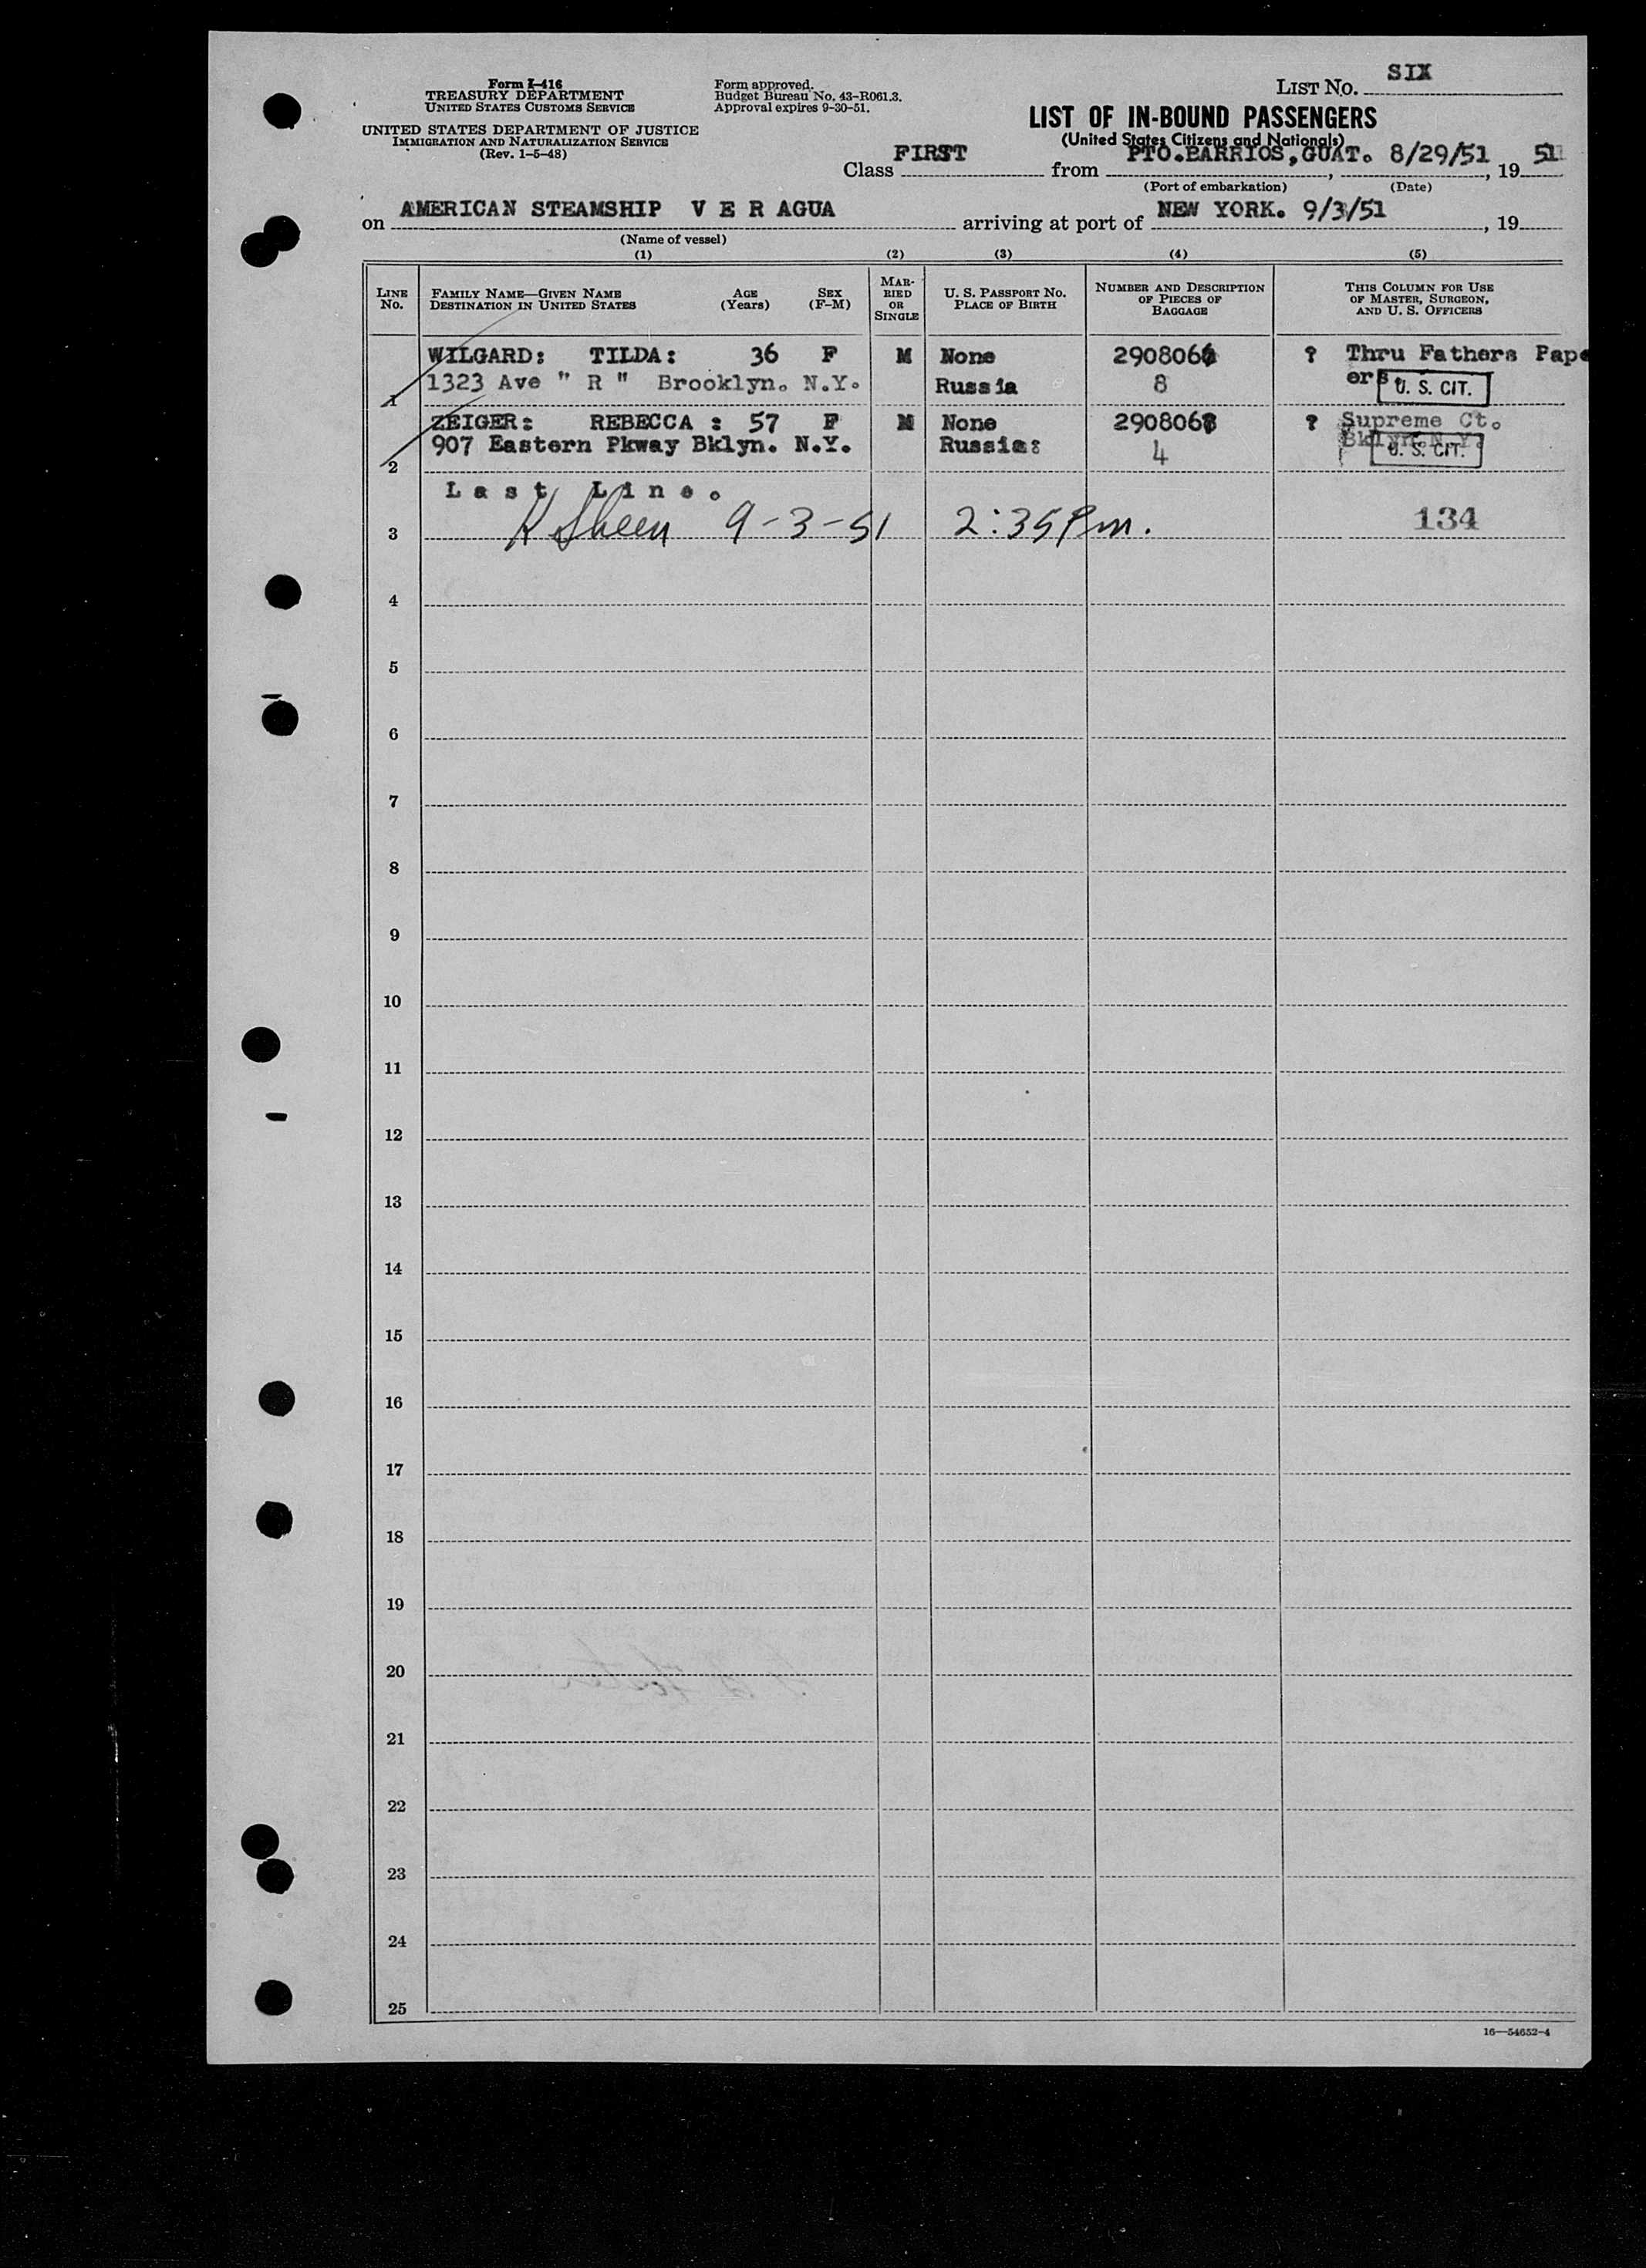 Form I-416
TREASURY DEPARTMENT
UNITED STATES CUSTOMS SERVICE
UNITED STATES DEPARTMENT OF JUSTICE
IMMIGRATION AND NATURALIZATION SERVICE
(Rev. 1-5-48)
Form approved.
Budget Bureau No. 43-R061.3.
Approval expires 9-30-51.
LIST NO. SIX
LIST OF IN-BOUND PASSENGERS
(United States Citizens and Nationals)
Class FIRST from PTO.BARRIOS,GUAT. 8/29/51, 19 51
(Port of embarkation) (Date)
on AMERICAN STEAMSHIP V E R AGUA arriving at port of NEW YORK. 9/3/51, 19
(Name of vessel)
(1) (2) (3) (4) (5)
LINE NO.
FAMILY NAME—GIVEN NAME
DESTINATION IN UNITED STATES
AGE (Years)
SEX (F-M)
MARRIED OR SINGLE
U. S. PASSPORT NO.
PLACE OF BIRTH
NUMBER AND DESCRIPTION OF PIECES OF BAGGAGE
THIS COLUMN FOR USE OF MASTER, SURGEON, AND U. S. OFFICERS
WILGARD: TILDA: 36 F M None 290806 ? Thru Fathers Pape
1 1323 Ave " R " Brooklyn. N.Y. Russia 8 ers. U. S. CIT.
ZEIGER: REBECCA : 57 F M None 290806 ? Supreme Ct.
2 907 Eastern Pkway Bklyn. N.Y. Russia: 4 Bklyn.N.Y. U. S. CIT.
L a s t L i n e .
3 K Sheen 9-3-51 2:35 Pm. 134
4
5
6
7
8
9
10
11
12
13
14
15
16
17
18
19
20
21
22
23
24
25
16—54652-4